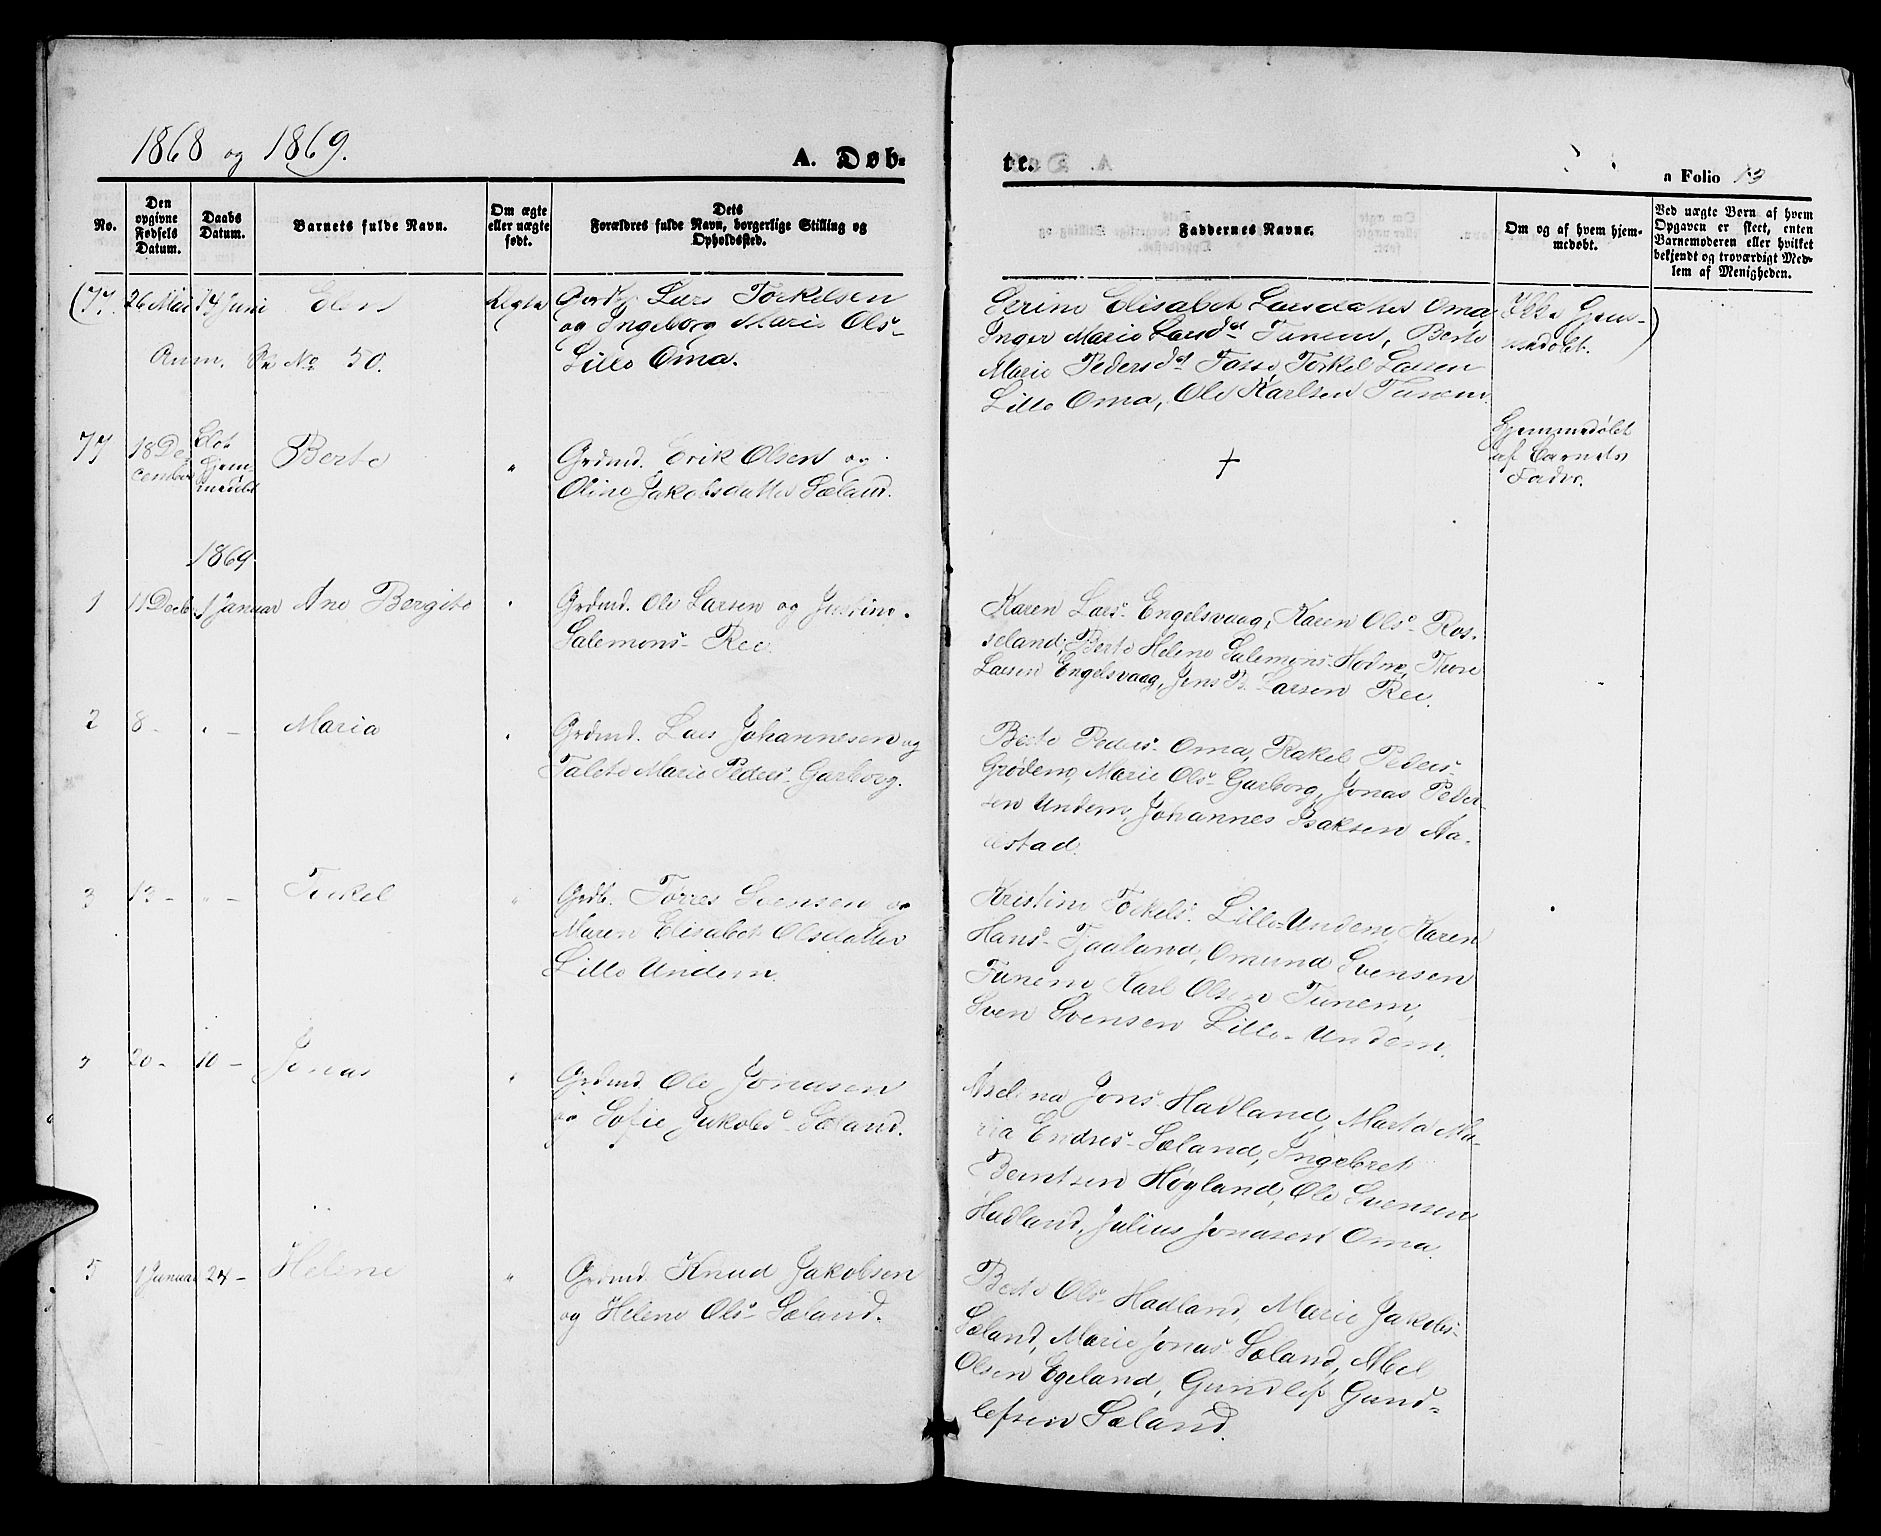 1868 og 1869.
A. Døb-
te.
Folio 13
No.
Den opgivne Fødsels Datum.
Daabs Datum.
Barnets fulde Navn.
Om ægte eller uægte født.
Dets Forældres fulde Navn, borgerlige Stilling og Opholdssted.
Faddernes Navne.
Om og af hvem hjemmedøbt.
Ved uægte Børn af hvem Opgaven er skeet, enten Barnemoderen eller hvilket bekjendt og troværdigt Medlem af Menigheden.
(77. 26 Mai 14 Juni Elen Ægte Gardbr. Lars Torkelsen
og Ingeborg Marie Ols-
Lille Oma.
Anm. No. 50.
Serine Elisabet Larsdatter Oma
Inger Marie Larsdt Tunem, Berte
Marie Pedersdt Tosse, Torkel Larsen
Lille Oma, Ole Karlsen Tunem.
Ikke Hjem-
medøbt.)
77 18 De-
cember
Blot
hjem-
medøbt
Berte " Grdmd. Erik Olsen og
Oline Jakobsdatter Sæland.
†
Hjemmedøbt
af Barnets
Fader.
1869.
1 11 Decb. 1 Januar Ane Bergite " Grdmd. Ole Larsen og Justine
Salemons- Ree.
Karen Lars- Engelsvaag, Karen Ols- Ros-
seland, Berte Helene Salemons- Hodne, Thore
Larsen Engelsvaag, Jens B. Larsen Ree.
2 8 - " - Maria " Grdmd. Lars Johannesen og
Talete Marie Peders- Garborg.
Berte Peders- Oma, Rakel Peders-
Grødem, Marie Ols- Garborg, Jonas Peder-
sen Undem, Johannes Isaksen Aa-
restad.
3 13 - " - Torkel " Grdb. Tørres Svensen og
Maren Elisabet Olsdatter
Lille Undem.
Kristine Torkels- Lille-Undem, Karen
Hans- Tjaaland, Omund Svensen
Tunem, Karl Olsen Tunem,
Sven Svensen Lille-Undem.
20 - 10 - Jonas " Grdmd. Ole Jonasen
og Sofie Jakobs- Sæland.
Aselina Jons- Hadland, Marta Ma-
ria Endres- Sæland, Ingebret
Berntsen Høyland, Ole Svensen
Hadland, Julius Jonasen Oma.
5 1 Januar 24 - Helene " Grdmd. Knud Jakobsen
og Helene Ols- Sæland.
Berte Ols- Hadland, Marie Jakobs-
Sæland, Marie Jonas- Sæland, Abel
Olsen Egeland, Gundlef Gund-
lefsen Sæland.